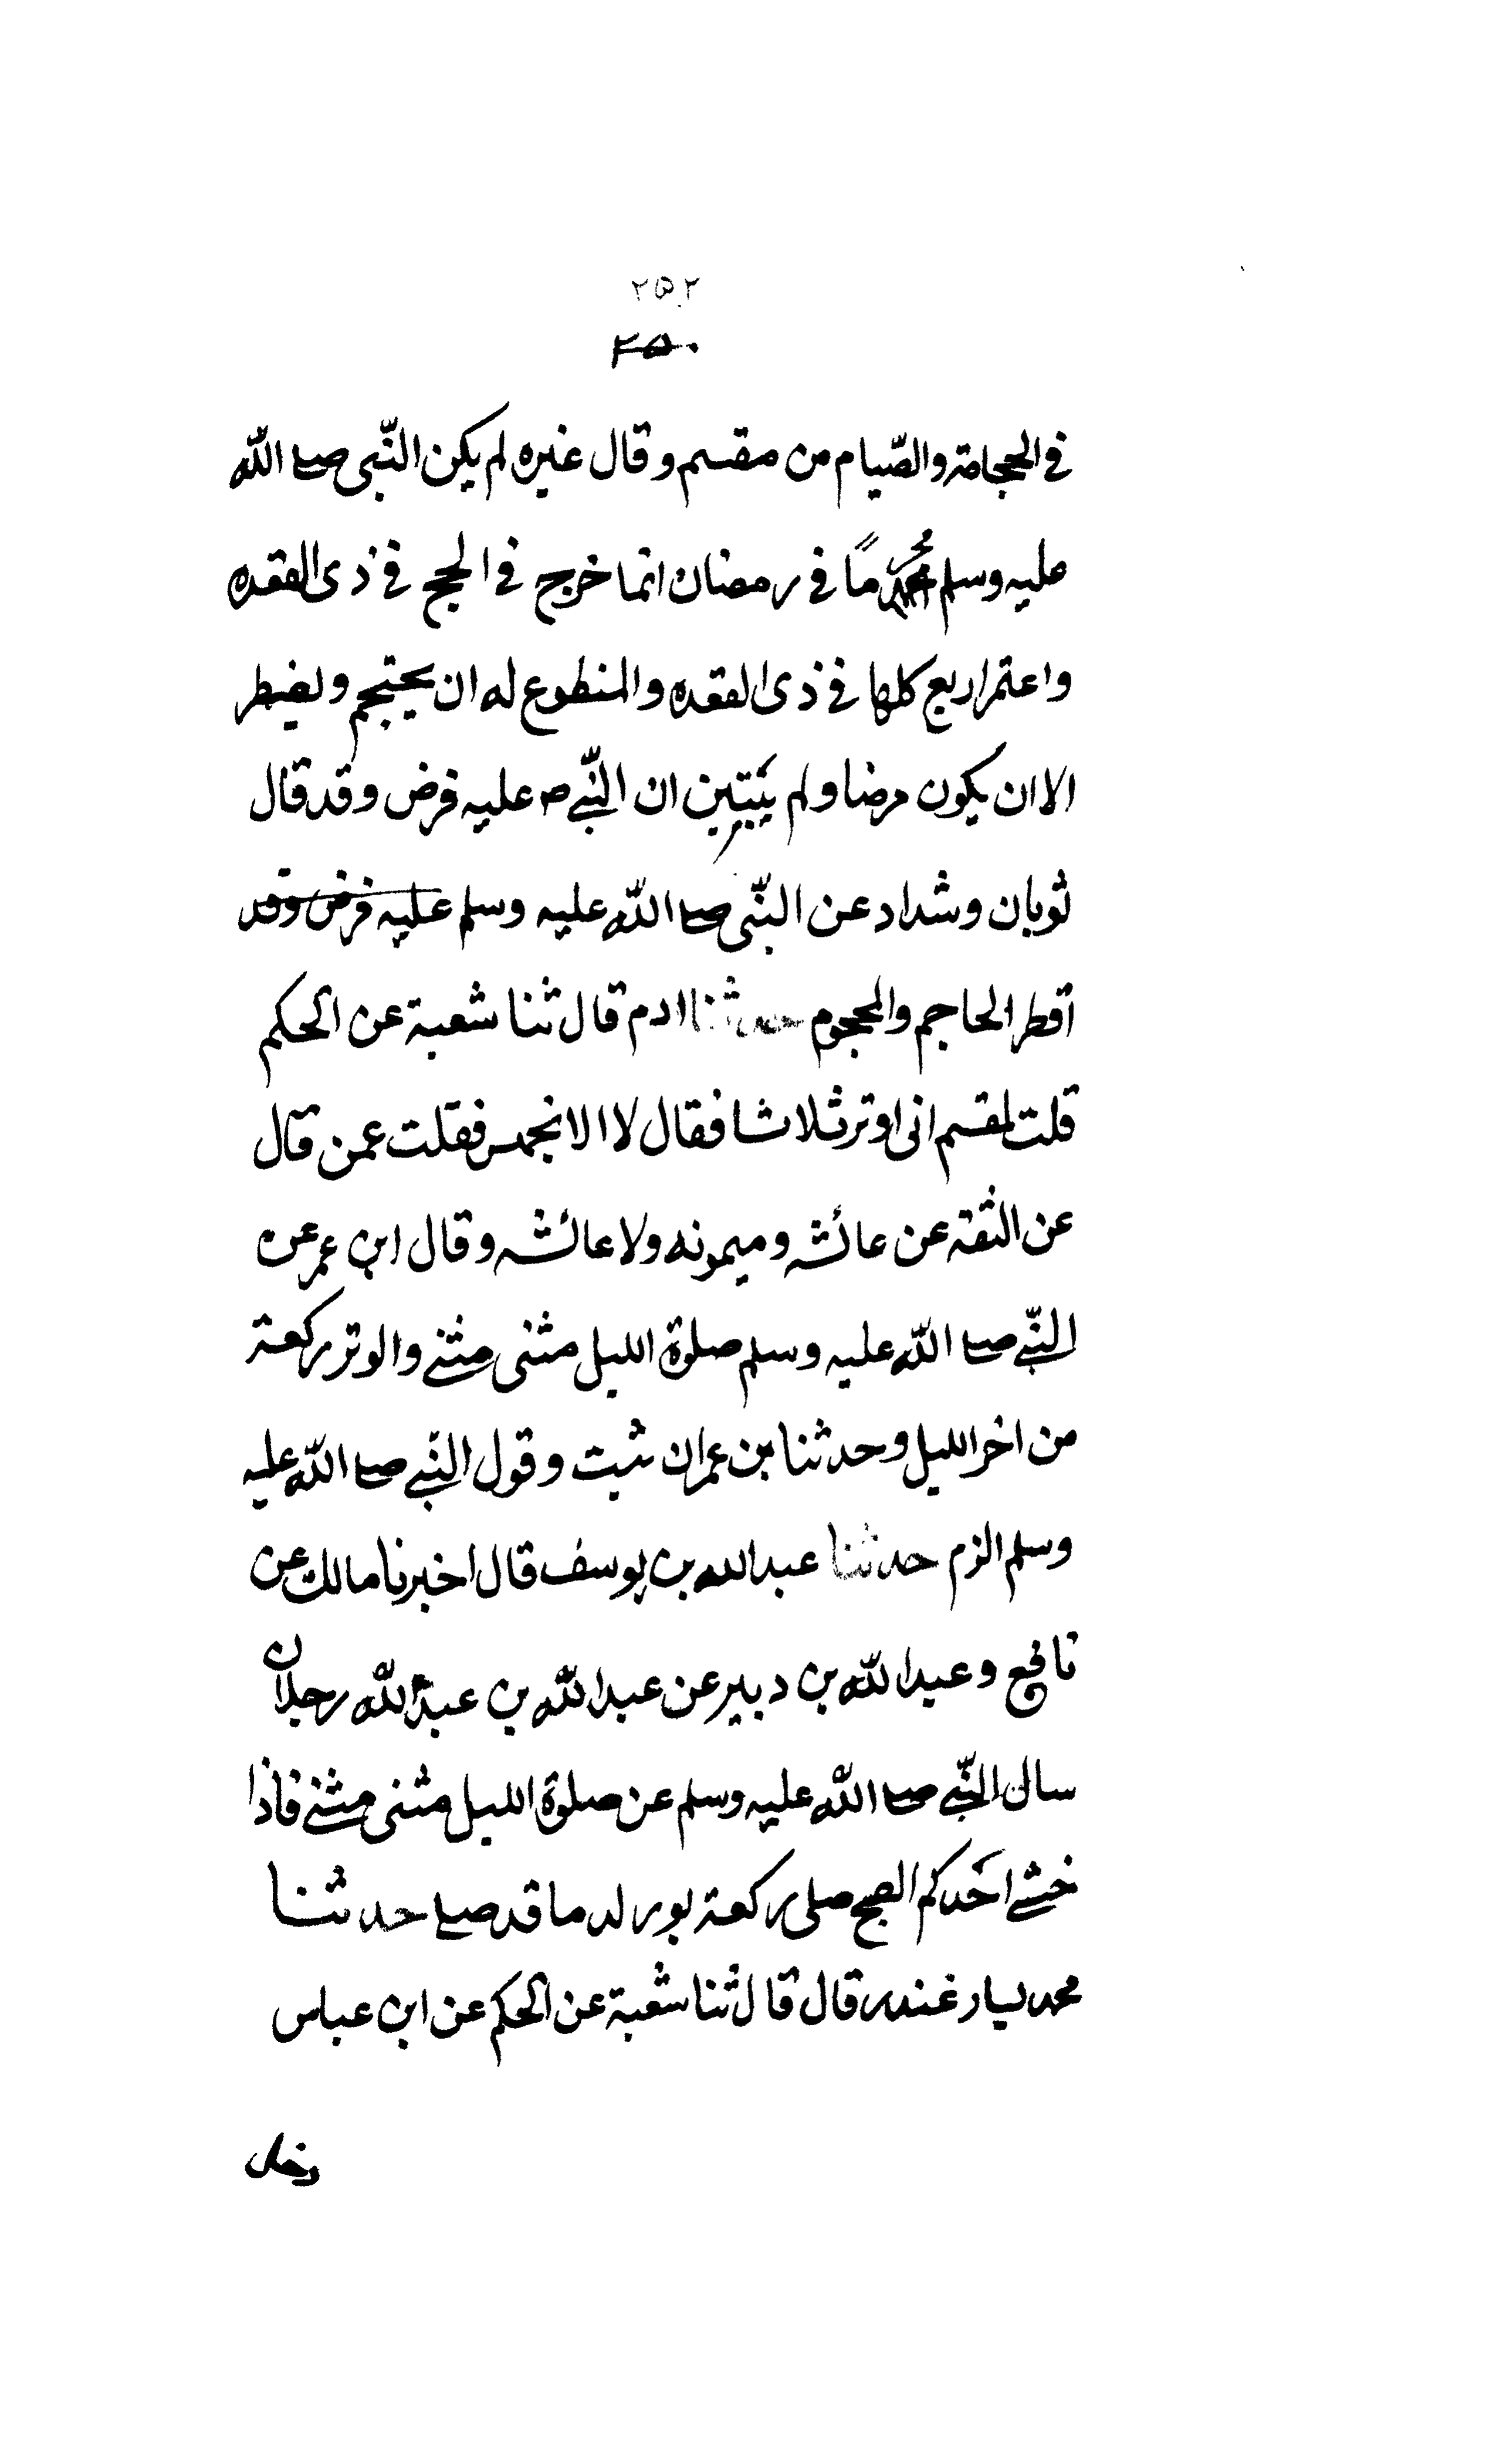 ٢٥٢
٢٥٠
في الحجامة والصّيام من مقسم وقال غيره لم يكن النّبي صلى اللّه
عليه وسلم محرمًا في رمضان انما خرج في الحج في ذي القعده
واعتمر اربع كلها في ذي القعده والمتطوع له ان يحتجم ويفطر
الا ان يكون مرضا ولم يتبين ان النّبي ص عليه فرض وقد قال
ثوبان وشداد عن النّبي صلى اللّه عليه وسلم عليه فرض وقد
افطر الحاجم والمحجوم حدثنا ادم قال ثنا شعبة عن الحكم
قلت لمقسم انى اوتر ثلاثا فقال لا الا بخمس فقلت عمن قال
عن الثقة عن عائشه وميمونه ولا عائشه وقال ابن عمر عن
النّبي صلى اللّه عليه وسلم صلوة الليل مثنى مثنى والوتر ركعة
من اخر الليل وحدثنا بن عمران ثبت وقول النّبي صلى اللّه عليه
وسلم الزم حدثنا عبد الله بن يوسف قال اخبرنا مالك عن
نافع وعبد اللّه بن دبير عن عبد اللّه بن عبد اللّه رجلا ان
سال النّبي صلى اللّه عليه وسلم عن صلوة الليل مثنى مثنى فاذا
خشي احَدكم الصبح صلى ركعة يوتر له ما قد صلى حدثنا
محمد بسار غندر قال قال ثنا شعبة عن الحكم عن ابن عباس